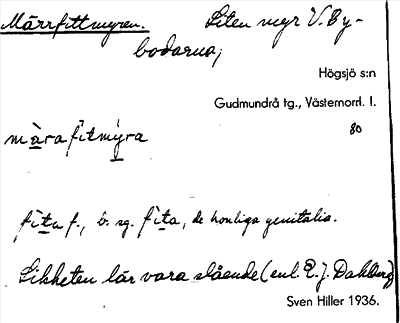 Märrfittmyren. Liten myr V. By-
bodarna,
Högsjö s:n
Gudmundrå tg., Västernorrl. l.
80
màrafìtmýra
fìta f., b. sg. fìta, de kvinliga genitalia.
Likheten lär vara slående (enl. E. J. Dahlberg)
Sven Hiller 1936.